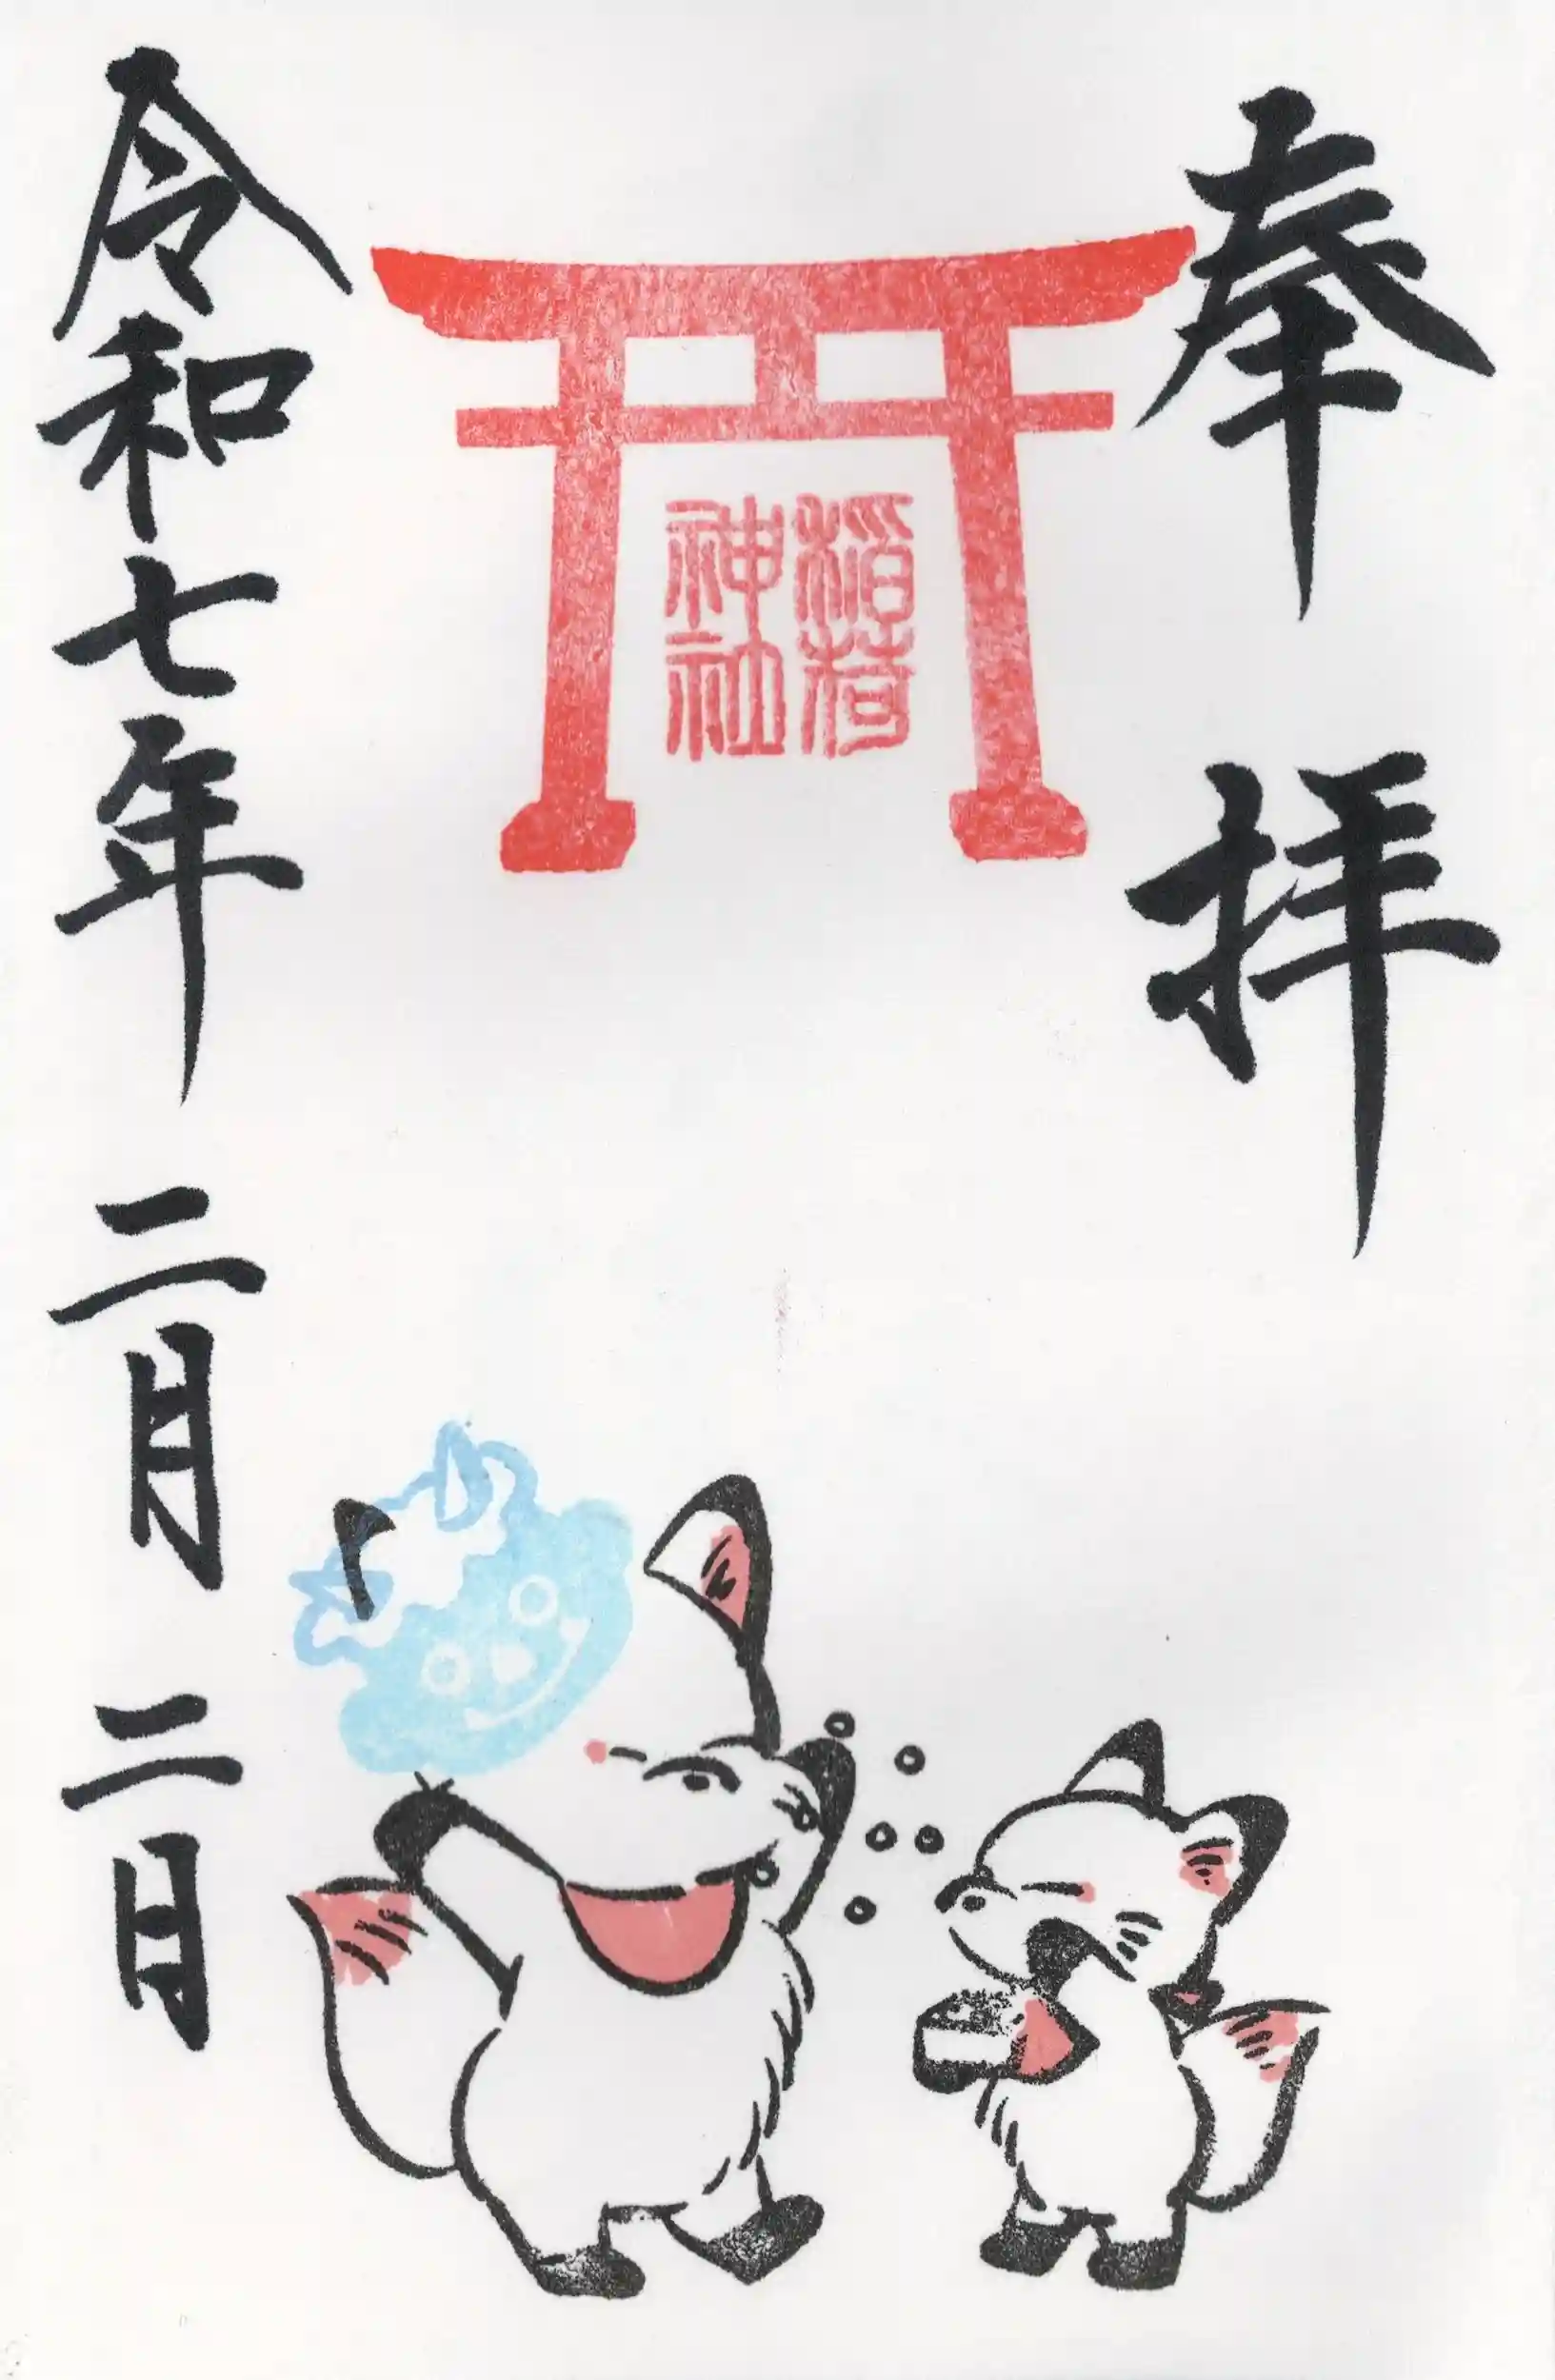 奉拝
稲荷
神社
令和七年 二月 二月